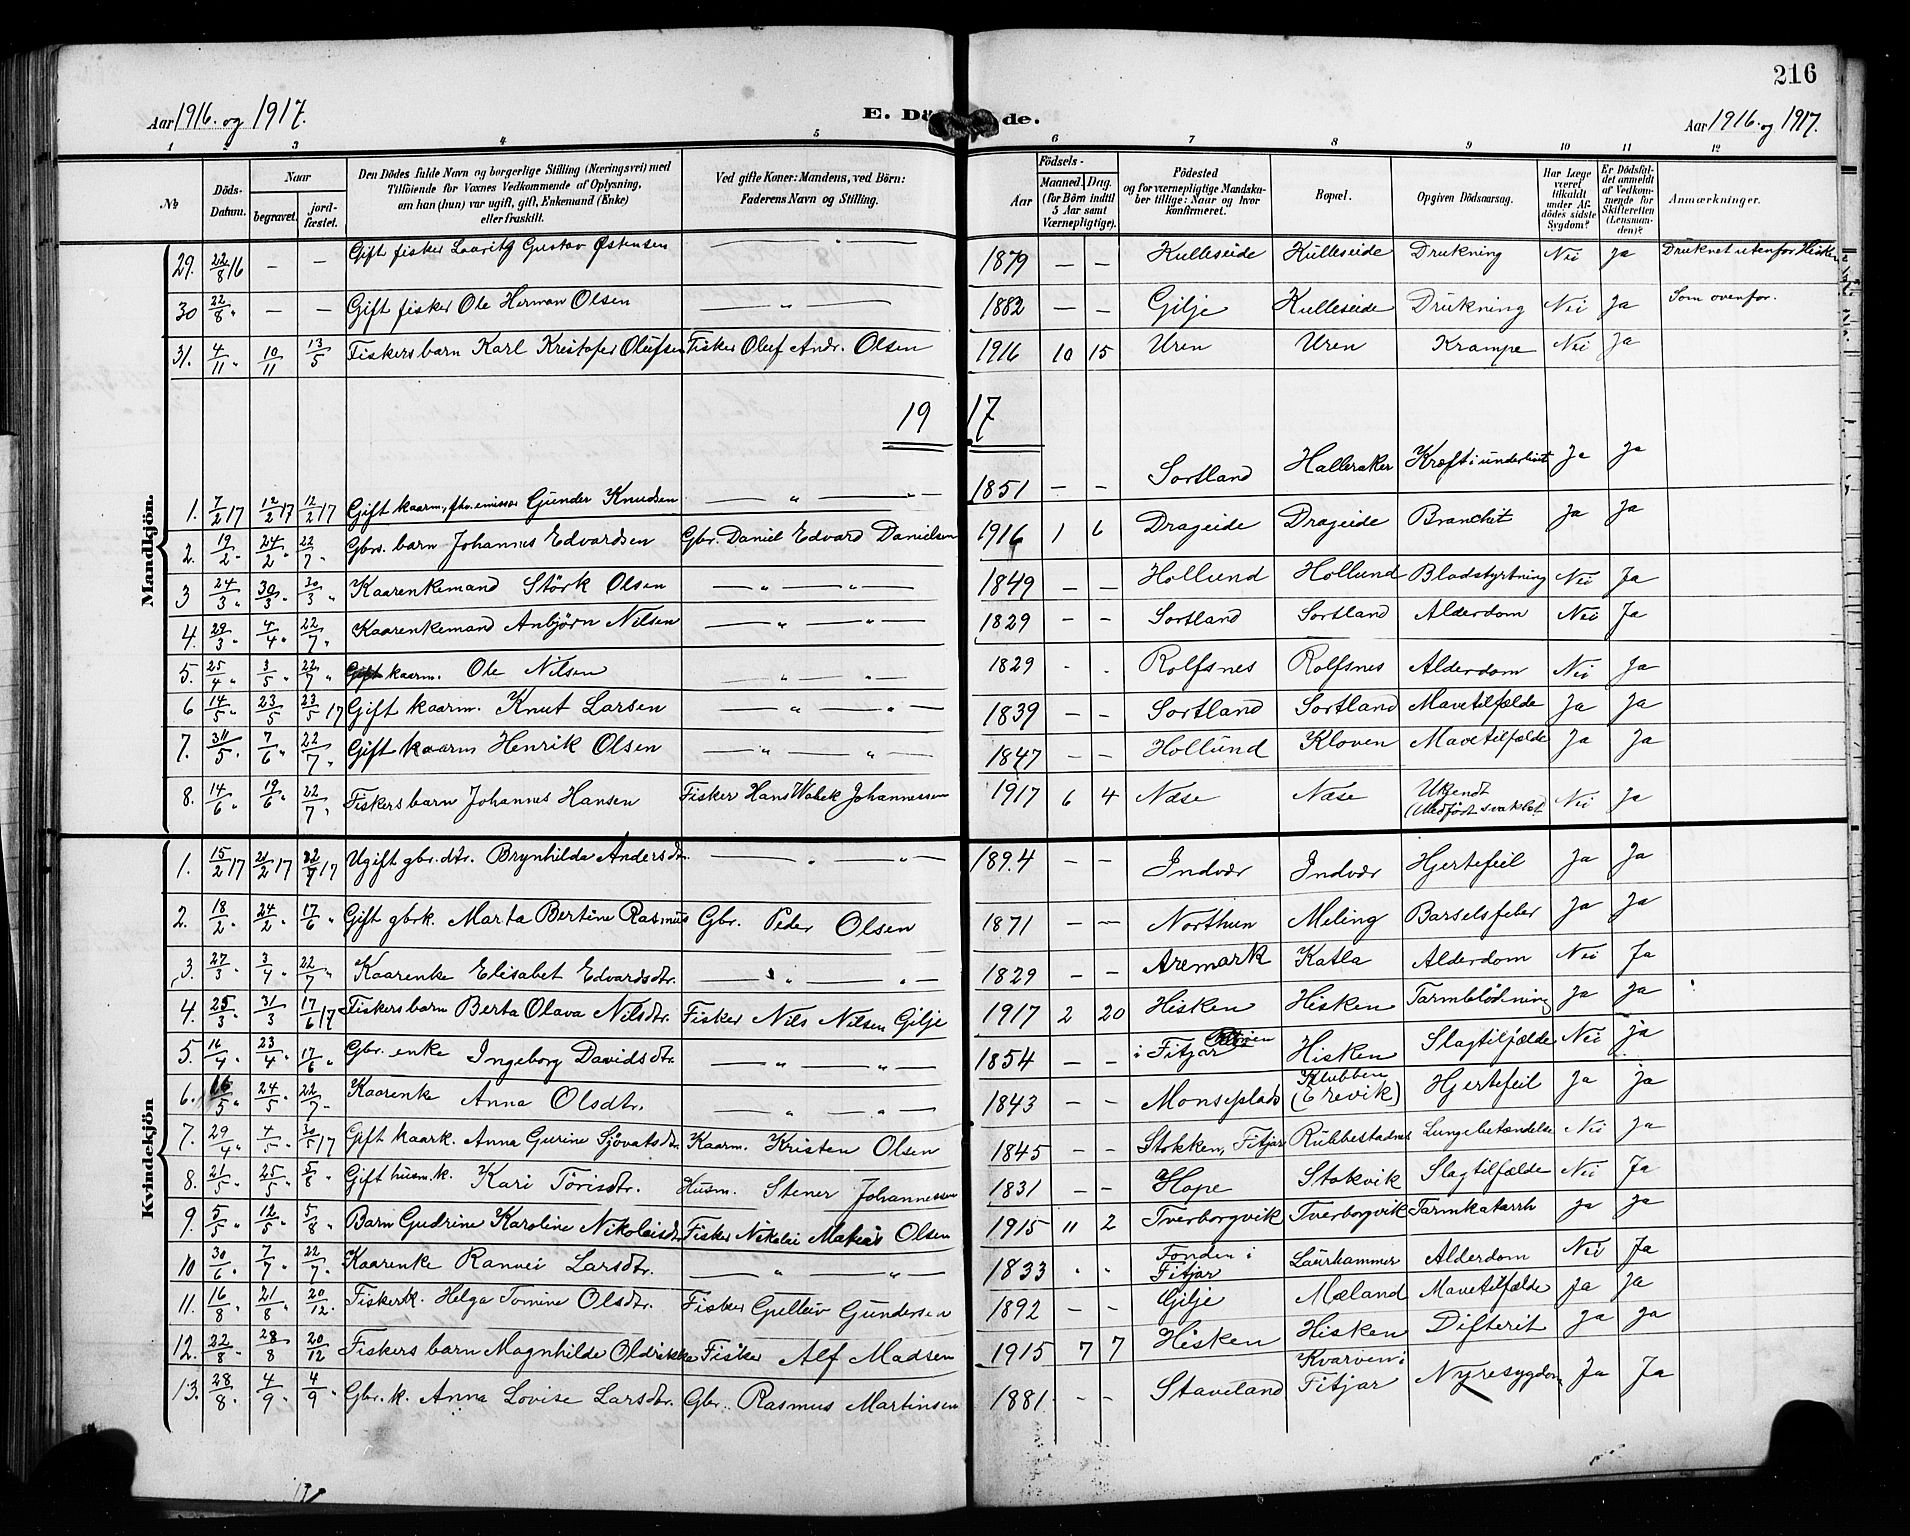 216
Aar 1916. og 1917.
E. Dö de.
Aar 1916. og 1917.
1 2 3 4 5 6 7 8 9 10 11 12
No
Döds-Datum.
Naar
begravet.
jord-fæstet.
Den Dödes fulde Navn og borgerlige Stilling (Næringsvei) med
Tilföiende for Voxnes Vedkommende af Oplysning,
om han (hun) var ugift, gift, Enkemand (Enke)
eller fraskilt.
Ved gifte Koner: Mandens, ved Börn:
Faderens Navn og Stilling.
Födsels-
Aar
Maaned. Dag.
(for Börn indtil
5 Aar samt
Værnepligtige).
Födested
og for værnepligtige Mandsku-
ber tillige: Naar og hvor
konfirmeret.
Bopæl.
Opgiven Dödsaarsag.
Har Læge
været
tilkaldt
under Af-
dödes sidste
Sygdom?
Er Dödsfal-
det anmeldt
af Vedkom-
mende for
Skifteretten
(Lensman-
den)?
Anmærkninger.
Mandkjön.
29. 22/8 16 — — Gift fisker Lauritz Gustav Östensen — " — 1879 — — Kulleseide Kulleseide Drukning Nei Ja Druknet utenfor Hisken
30 22/8 " — — Gift fisker Ole Herman Olsen — " — 1882 — — Gilje Kulleseide Drukning Nei Ja Som ovenfor.
31. 4/11 " 10/11 13/5 Fiskers barn Karl Kristofer Olufsen Fisker Oluf Andr. Olsen 1916 10 15 Uren Uren Krampe Nei Ja
19 17
1. 7/2 17 12/2 17 12/2 17 Gift kaarm, fhv. emissær Gunder Knudsen — " — " — 1851 — — Sortland Halleraker Kræft i underlivet Ja Ja
2. 19/2 " 24/2 " 22/7 " Gbrs. barn Johannes Edvardsen Gbr. Daniel Edvard Danielsen 1916 1 6 Drageide Drageide Bronchit Ja Ja
3 24/3 " 30/3 " 30/3 " Kaarenkemand Störk Olsen — " — " — 1849 — — Hollund Hollund Blodstyrtning Nei Ja
4. 29/3 " 4/4 " 22/7 " Kaarenkemand Anbjörn Nilsen — " — " — 1829 — — Sortland Sortland Alderdom Nei Ja
5. 25/4 " 3/5 " 22/7 " Gift kaarm. Ole Nilsen — " — " — 1829 - - Rolfsnes Rolfsnes Alderdom Nei Ja
6 14/5 " 23/5 23/5 17 Gift kaarm. Knut Larsen — " — " — 1839 — — Sortland Sortland Mavetilfælde Ja Ja
7. 31/5 " 7/6 " 22/7 " Gift kaarm Henrik Olsen — " — " — 1847 — — Hollund Kloven Mavetilfælde Ja Ja
8. 14/6 " 19/6 " 22/7 " Fiskers barn Johannes Hansen Fisker Hans Johannessen 1917 6 4 Næse Næse Ukjendt (Medfödt svakhet) Nei Ja
Kvindekjön
1. 15/2 17 21/2 17 22/7 17 Ugift gbr. dtr. Brynhilda Andersdtr. — " — " — 1894 — — Indvær Indvær Hjertefeil Ja Ja
2. 18/2 " 24/2 " 17/6 " Gift gbrk. Marta Bertine Rasmus Gbr. Peder Olsen 1871 — — Northun Meling Barselsfeber Ja Ja
3. 27/3 " 3/4 " 22/7 " Kaarenke Elisabet Edvardsdtr. — " — " — 1829 — — Aremark Katla Alderdom Nei Ja
4. 25/3 " 31/3 17/6 17 Fiskers barn Berta Olava Nilsdtr. Fisker Nils Nilsen Gilje 1917 2 20 Hisken Hisken Tarmblödning Ja Ja
5. 16/4 " 23/4 " 17/6 " Gbr. enke Ingeborg Davidsdtr. — " — " — 1854 — — i Fitjar Hisken Slagtilfælde Nei ja
6. 16/5 " 24/5 " 22/7 " Kaarenke Anna Olsdtr. — " — " — 1843 — — Monseplads Klubben (Erevik) Hjertefeil Ja ja
7. 29/4 " 4/5 " 30/5 17 Gift kaark. Anna Gurine Sjövatsdtr. Kaarm. Kristen Olsen 1845 — — Stokken, Fitjar Rubbestadnes Lungebetændelse Nei Ja
8. 21/5 " 25/5 " 5/8 " Gift husm. k. Kari Törisdtr. Husm. Stener Johannessen 1831 — — Hope Stokvik Slagtilfælde Nei Ja
9. 5/5 " 12/5 " 5/8 " Barn Gudrine Karoline Nikolaisdtr Fisker Nikolai Matias Olsen 1915 11 2 Tverborgvik Tverborgvik Tarmkatarrh Ja Ja
10 30/6 " 7/7 " 22/7 " Kaarenke Ranvei Larsdtr. — " — " — 1833 " " Fonden i Fitjar Laurhammer Alderdom Nei Ja
11. 16/8 21/8 " 20/12 " Fiskerk. Helga Tomine Olsdtr. Fisker Gulleiv Gundersen 1892 — — Gilje Mæland Mavetilfælde Ja Ja
12. 22/8 - 28/8 20/12 Fiskers barn Magnhilde Fisker Alf Madsen 1915 7 7 Hisken Hisken Difterit Ja Ja
13. 28/8 4/9 " 4/9 " Gbr. k. Anna Lovise Larsdtr. Gbr. Rasmus Martinsen 1881 - - Staveland Kvarven i Fitjar Nyresygdom Ja Ja